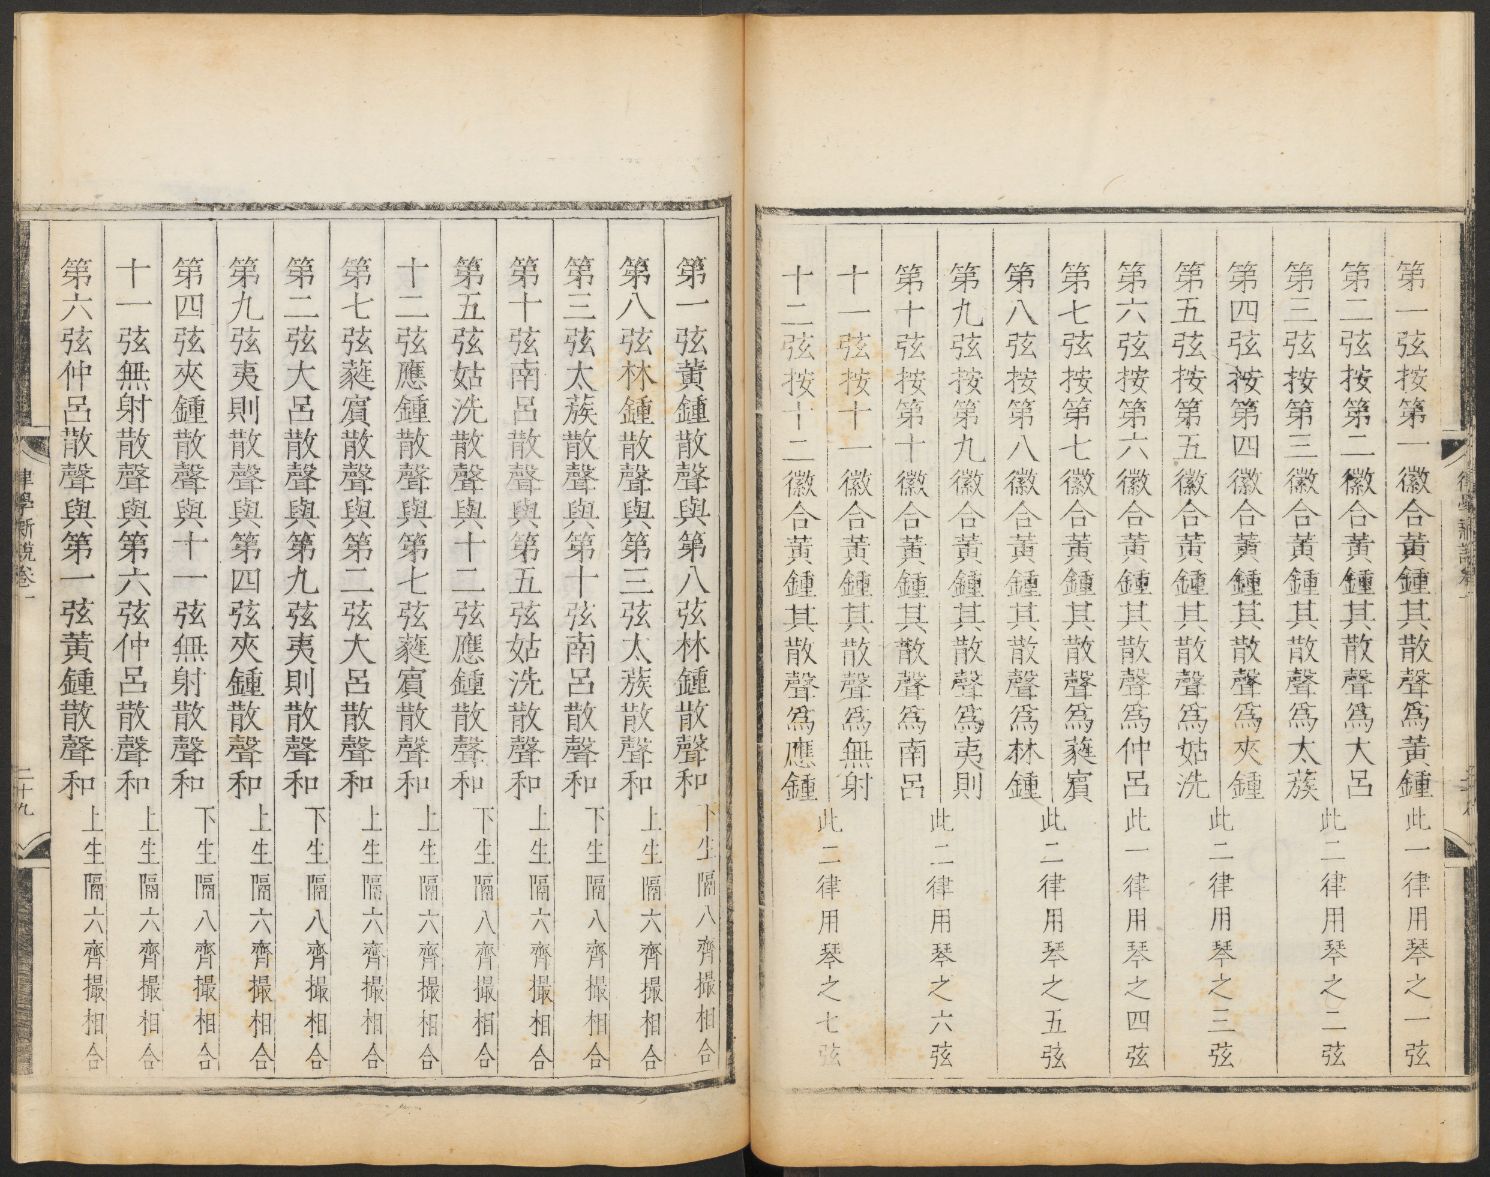 第一弦按第一徽合黃鍾其散聲爲黃鍾
此一律用琴之一弦
第二弦按第二徽合黃鍾其散聲爲大呂
第三弦按第三徽合黃鍾其散聲爲太蔟
此二律用琴之二弦
第四弦按第四徽合黃鍾其散聲爲夾鍾
第五弦按第五徽合黃鍾其散聲爲姑洗
此二律用琴之三弦
第六弦按第六徽合黃鍾其散聲爲仲呂
此一律用琴之四弦
第七弦按第七徽合黃鍾其散聲爲蕤賔
第八弦按第八徽合黃鍾其散聲爲林鍾
此二律用琴之五弦
第九弦按第九徽合黃鍾其散聲爲夷則
第十弦按第十徽合黃鍾其散聲爲南呂
此二律用琴之六弦
十一弦按十一徽合黃鍾其散聲爲無射
十二弦按十二徽合黃鍾其散聲爲應鍾
此二律用琴之七弦
第一弦黃鍾散聲與第八弦林鍾散聲和下生隔八齊撮相合
第八弦林鍾散聲與第三弦太蔟散聲和上生隔六齊撮相合
第三弦太蔟散聲與第十弦南呂散聲和下生隔八齊撮相合
第十弦南呂散聲與第五弦姑洗散聲和上生隔六齊撮相合
第五弦姑洗散聲與十二弦應鍾散聲和下生隔八齊撮相合
十二弦應鍾散聲與第七弦蕤賔散聲和上生隔六齊撮相合
第七弦蕤賔散聲與第二弦大呂散聲和上生隔六齊撮相合
第二弦大呂散聲與第九弦夷則散聲和下生隔八齊撮相合
第九弦夷則散聲與第四弦夾鍾散聲和上生隔六齊撮相合
第四弦夾鍾散聲與十一弦無射散聲和下生隔八齊撮相合
十一弦無射散聲與第六弦仲呂散聲和上生隔六齊撮相合
第六弦仲呂散聲與第一弦黃鍾散聲和上生隔六齊撮相合
律學新說卷一
二十九